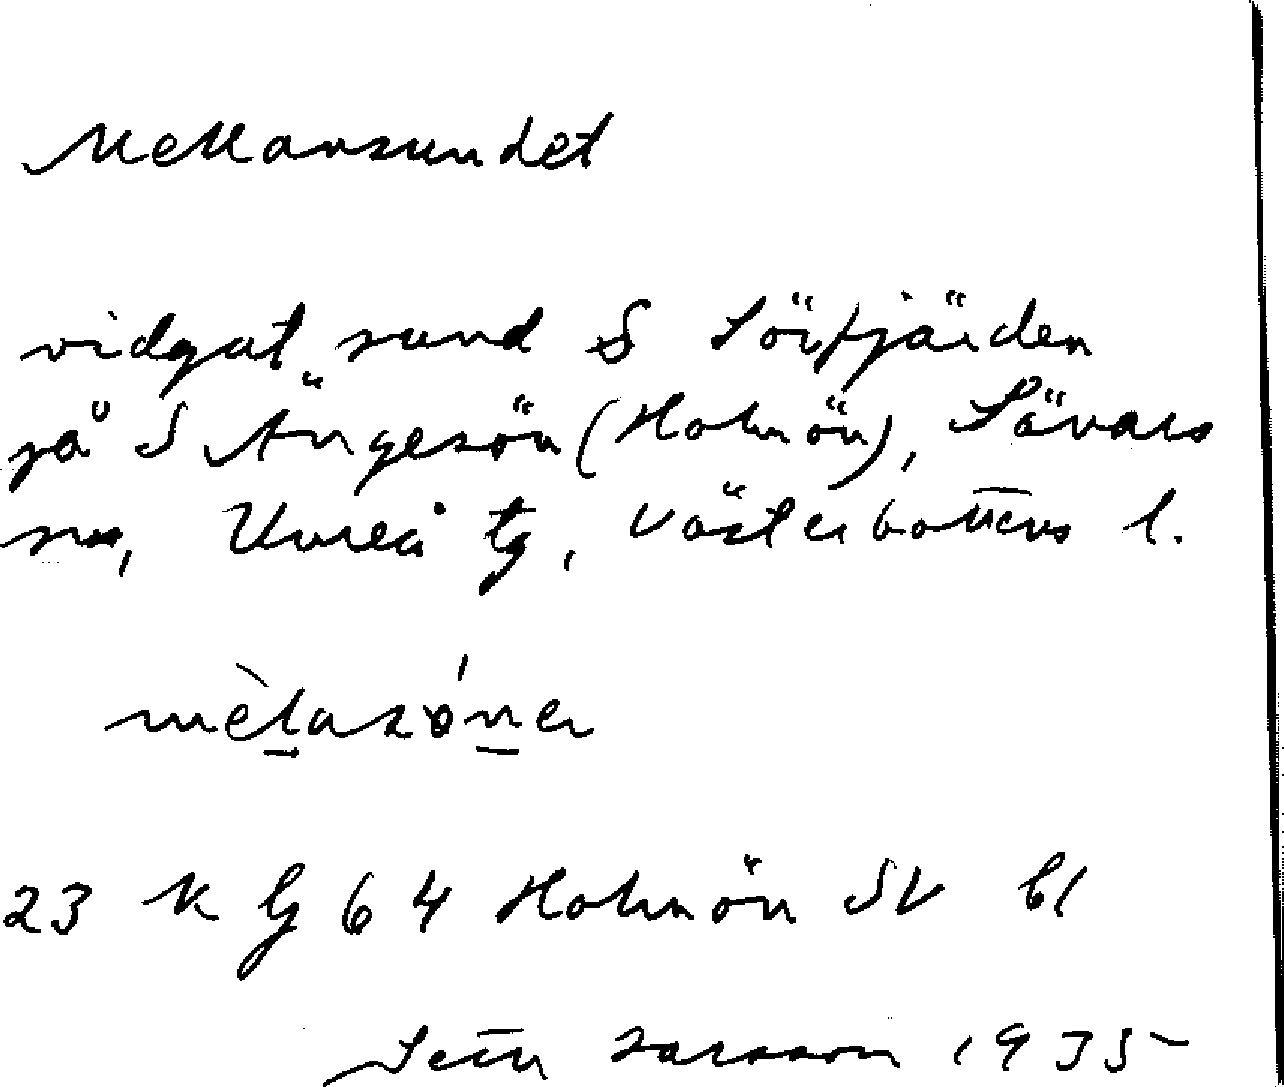 Mellansundet
vidgat sund S Sörfjärden
på S Ängesön (Holmön), Sävars
sn, Umeå tg, Västerbottens l.
mèlasóner
23 K G 64 Holmön SV bl
Larsson 1935